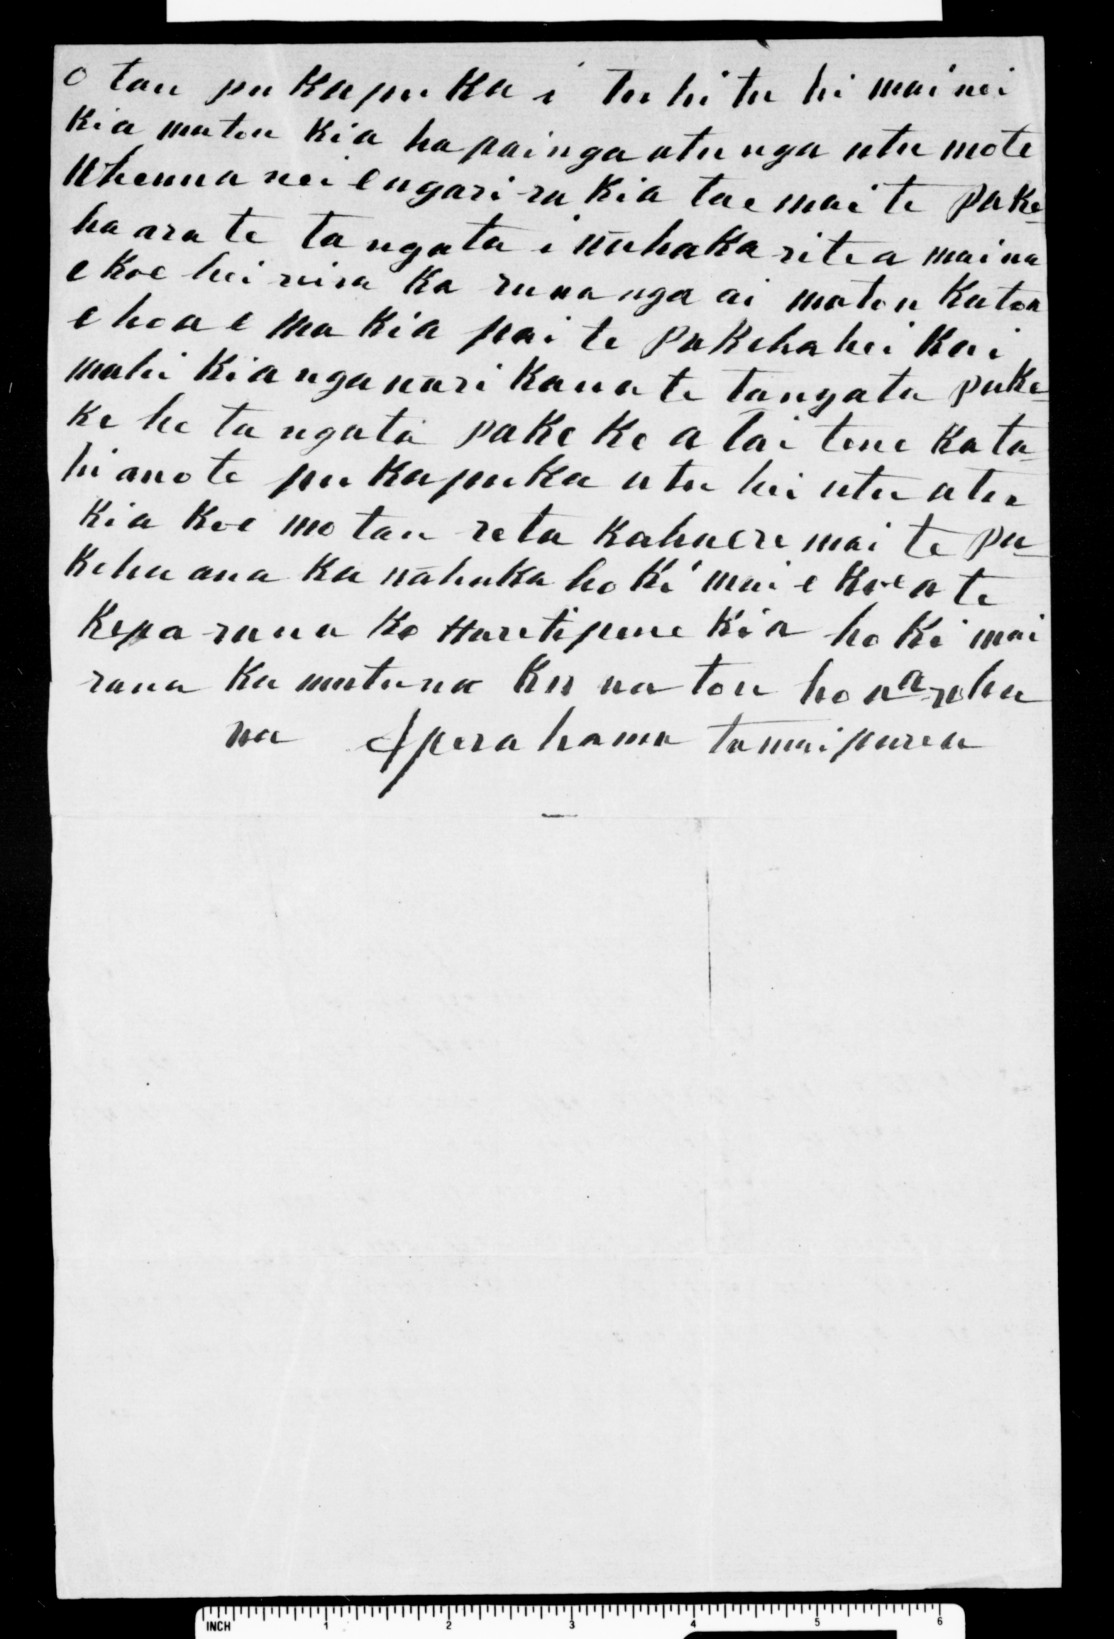 o tau pukapuka i tuhituhi mai nei
kia matou kia hapainga atu nga utu mo te
Whenua nei engari ra kia tae mai te pake-
ha ara te tangata i whakaritea mai na
e koe hei reira ka runanga ai matou katoa
e hoa e ma kia pai te pakeha hei kai
mahi kia ngawari kaua te tangata pake-
ke he tangata pakeke a tai tene kata-
hi ano te pukapuka utu hei utu atu
kia koe mo tau reta kahaere mai te pa
keha ana ka whaka hoki mai e koe a te
Kepa raua ko Haretipene kia hoki mai
raua Ka mutu na Ku na tou hoa aroha
na Aperahama tamaiparea
INCH 1 2 3 4 5 6